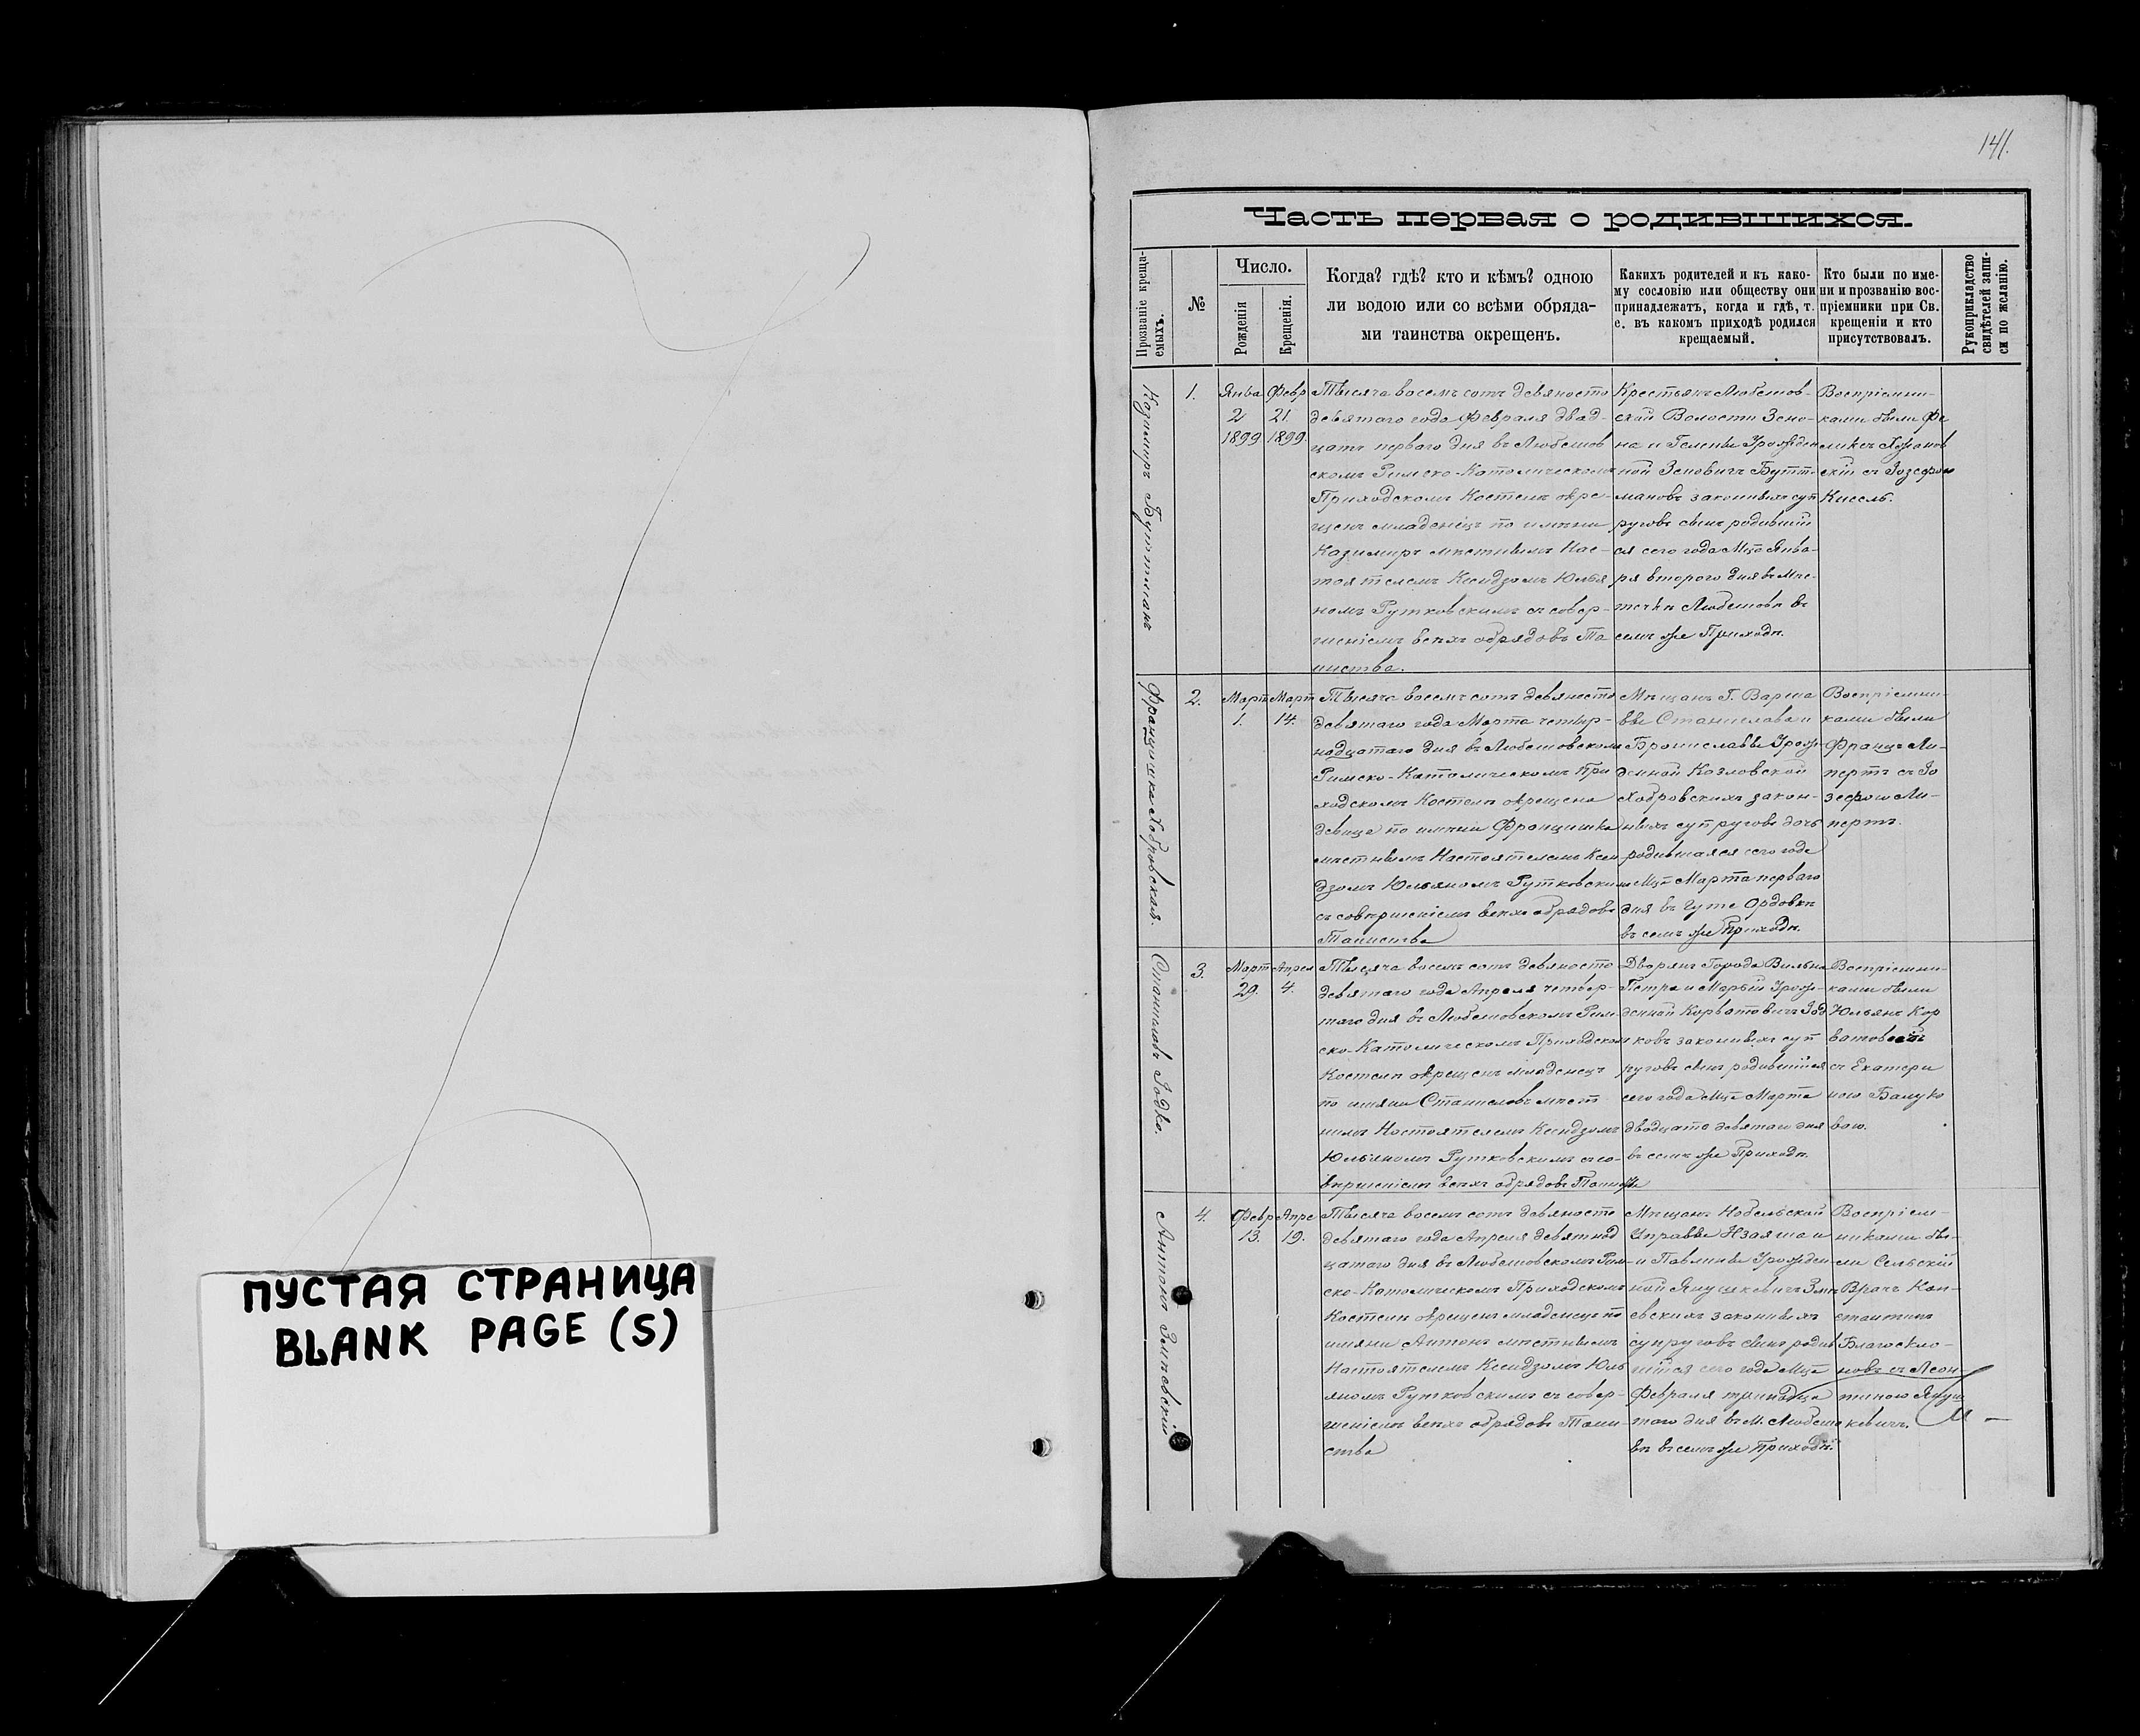 ПУСТАЯ СТРАНИЦА
BLANK PAGE (S)
141.
Часть первая о родившихся.
Прозваніе креща-
емыхъ.
№
Число.
Рожденія
Крещенія.
Когда? гдѣ? кто и кѣмъ? одною
ли водою или со всѣми обряда-
ми таинства окрещенъ.
Какихъ родителей и къ како-
му сословію или обществу они
принадлежатъ, когда и гдѣ, т.
е. въ какомъ приходѣ родился
крещаемый.
Кто были по име-
ни и прозванію вос-
пріемники при Св.
крещеніи и кто
присутствовалъ.
Рукоприкладство
свидѣтелей запи-
си по желанію.
Казимиръ Буттманъ
1.
Янва
2
1899
Февр
21.
1899.
Тысяча восемъ сотъ девяносто
девятаго года Февраля двад-
цать перваго дня въ Любешов
скомъ Римско-Католическомъ
Приходскомъ Костелѣ окре-
щенъ младенецъ по имени
Казимиръ мѣстнымъ Нас-
тоятелемъ Ксендзомъ Юлья
номъ Рутковскимъ съ совер-
шеніемъ всѣхъ обрядовъ Та
инства.
Крестьянъ Любешов-
ской Волости Зено-
на и Гелены Урожден
ной Зеновичъ Бутт-
мановъ законныхъ суп
руговъ сынъ родивший
ся сего года Мцѣ Янва-
ря второго дня въ Мѣс-
течкѣ Любешовѣ въ
семъ же Приходѣ.
Воспріемни-
ками были Фе
ликсъ
скій съ Іозефою
Кисель.
Францишка Хобровская.
2.
Март
1.
Март
14.
Тысяча восемъ сотъ девяносто
девятаго года Марта четыр-
надцатаго дня въ Любешовскомъ
Римско-Католическомъ При
ходскомъ Костелѣ окрещена
девица по имени Францишка
мѣстнымъ Настоятелемъ Ксен
дзомъ Юльяномъ Рутковскимъ
съ совершеніемъ всѣхъ обрядовъ
Таинства
Мѣщанъ Г. Варша
вы Станислава и
Брониславы Урож-
денной Козловской
Хобровскихъ закон-
ныхъ супруговъ дочь
родившаяся сего года
Мцѣ Марта перваго
дня въ Гуте Ордовкѣ
въ семъ же Приходѣ.
Воспріемни-
ками были
Францъ Ли-
пертъ съ Іо
зефою Ли-
пертъ.
Станиславъ Іодко.
3.
Март
29.
Апрел
4.
Тысяча восемъ сотъ девяносто
девятаго года Апреля четвер-
таго дня въ Любешовскомъ Рим-
ско-Католическомъ Приходском
Костелѣ окрещенъ младенецъ
по имяни Станиславъ мѣст
нымъ Настоятелемъ Ксендзомъ
Юльяномъ Рутковскимъ съ со-
вершеніемъ всѣхъ обрядовъ Таинства
Дворянъ Города Вильна
Петра и Марьи Урож-
денной Корватовичъ Іод
ковъ законныхъ суп
руговъ сынъ родившійся
сего года Мцѣ Марта
двадцать девятаго дня
въ семъ же Приходѣ.
Воспріемни-
ками были
Юльянъ Кор
съ Екатери
ною Балуко
вою.
Антонъ Зміевскій
4.
Февр
13.
Апре
19.
Тысяча восемъ сотъ девяносто
девятаго года Апреля девятнад
цатаго дня въ Любешовскомъ Рим-
ско-Католическомъ Приходскомъ
Костелѣ окрещенъ младенецъ по
имяни Антонъ мѣстнымъ
Настоятелемъ Ксендзомъ Юль
яномъ Рутковскимъ съ совер-
шеніемъ всѣхъ обрядовъ Таин-
ства
Мѣщанъ Нобельской
Управы
и Павлины Урожден
ной Янушкевичъ Змі
евскихъ законныхъ
супруговъ сынъ родив
шійся сего года Мцѣ
Февраля тринадца
таго дня въ М. Любешо
вѣ въ семъ же Приходѣ.
Воспріем-
никами бы-
ли Сельскій
Врачъ Кон-
стантинъ
Благоскло-
новъ съ Леон-
тиною Януш
кевичъ.